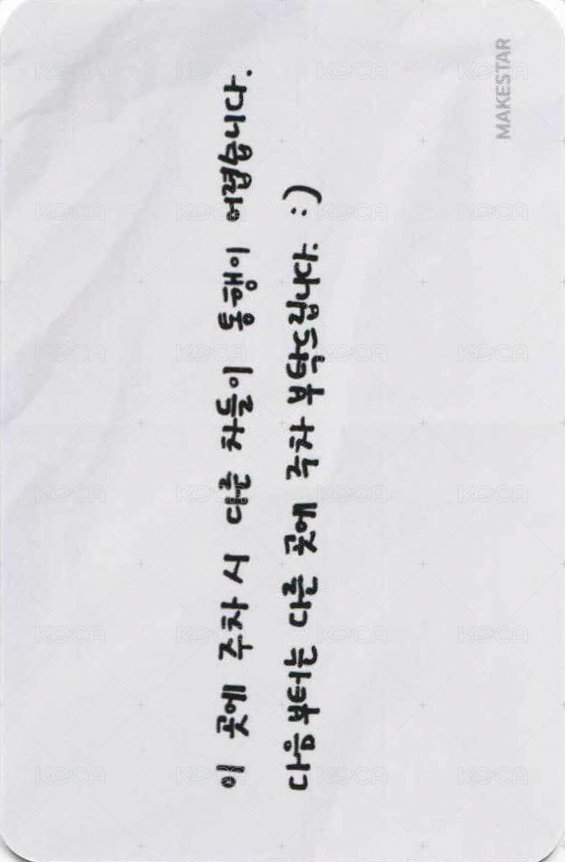 이 곳에 주차 시 다른 차들이 통행이 어렵습니다.
다음부터는 다른 곳에 주차 부탁드립니다. :)
MAKESTAR
KOCA